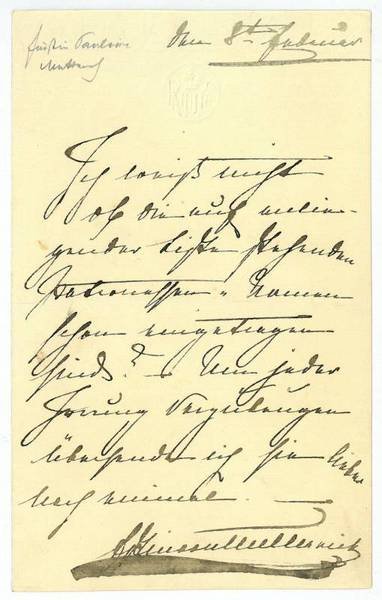 Fürstin Pauline
Metternich
den 8ten Februar
Ich weiß nicht
ob die auf anlie-
gender Liste stehenden
Patronessen-Namen
schon eingetragen
sind? – Um jeder
Irrung vorzubeugen
übersende ich sie lieber
noch einmal. —
Metternich